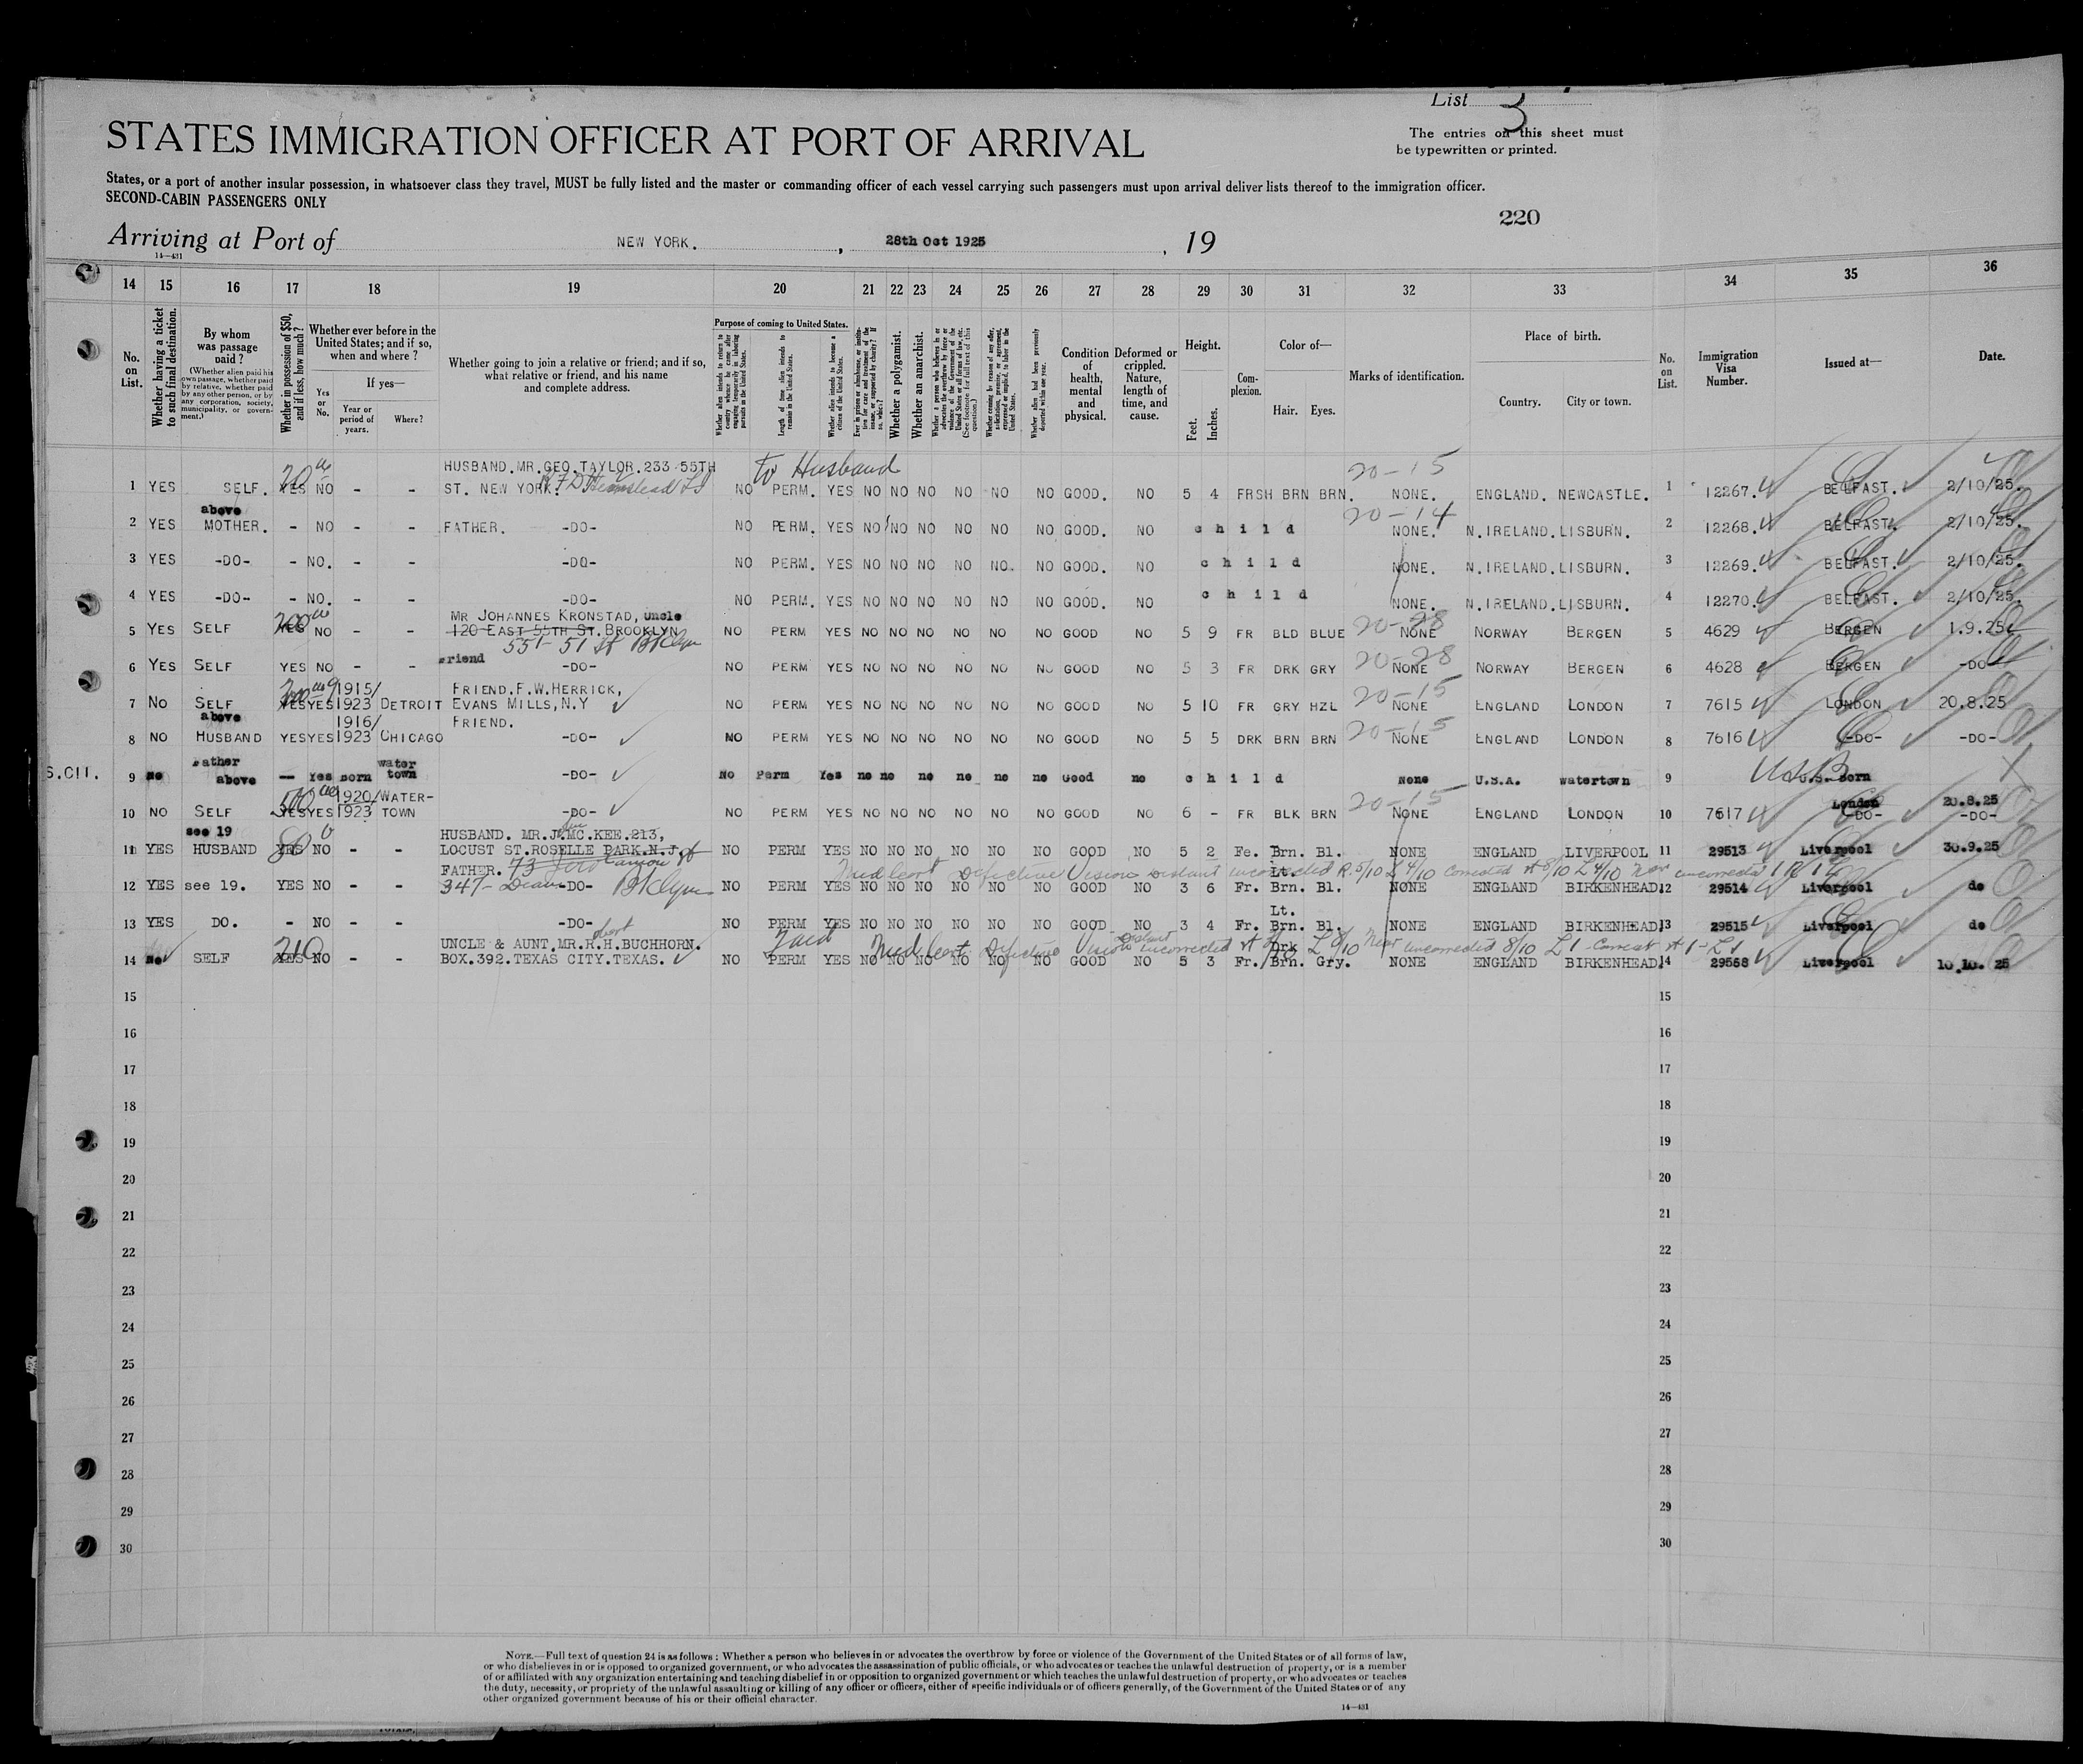 List 3
The entries on this sheet must
be typewritten or printed.
STATES IMMIGRATION OFFICER AT PORT OF ARRIVAL
States, or a port of another insular possession, in whatsoever class they travel, MUST be fully listed and the master or commanding officer of each vessel carrying such passengers must upon arrival deliver lists thereof to the immigration officer.
SECOND-CABIN PASSENGERS ONLY
220
Arriving at Port of NEW YORK. , 28th Oct 1925 , 19
14—431
14 15 16 17 18 19 20 21 22 23 24 25 26 27 28 29 30 31 32 33 34 35 36
No. on List.
Whether having a ticket to such final destination.
By whom was passage paid?
(Whether alien paid his own passage, whether paid by relative, whether paid by any other person, or by any corporation, society, municipality, or government.)
Whether in possession of $50, and if less, how much?
Whether ever before in the United States; and if so, when and where?
Yes or No.
If yes—
Year or period of years.
Where?
Whether going to join a relative or friend; and if so, what relative or friend, and his name and complete address.
Purpose of coming to United States.
Whether alien intends to return to country whence he came after engaging temporarily in laboring pursuits in the United States.
Length of time alien intends to remain in the United States.
Whether alien intends to become a citizen of the United States.
Ever in prison or almshouse, or institution for care and treatment of the insane, or supported by charity? If so, which?
Whether a polygamist.
Whether an anarchist.
Whether a person who believes in or advocates the overthrow by force or violence of the Government of the United States or all forms of law, etc. (See footnote for full text of this question.)
Whether coming by reason of any offer, solicitation, promise, or agreement, expressed or implied, to labor in the United States.
Whether alien had been previously deported within one year.
Condition of health, mental and physical.
Deformed or crippled. Nature, length of time, and cause.
Height.
Feet. Inches.
Complexion.
Color of—
Hair. Eyes.
Marks of identification.
Place of birth.
Country. City or town.
No. on List.
Immigration Visa Number.
Issued at—
Date.
HUSBAND.MR.GEO.TAYLOR.233 55TH To Husband 20-15
1 YES SELF. 20 YES NO - - ST. NEW YORK. RFD Hempstead LI NO PERM. YES NO NO NO NO NO NO GOOD. NO 5 4 FRSH BRN BRN. NONE. ENGLAND. NEWCASTLE. 1 12267. BELFAST. 2/10/25.
above 20-14
2 YES MOTHER. - NO - - FATHER. -DO- NO PERM. YES NO NO NO NO NO NO GOOD. NO child NONE. N.IRELAND. LISBURN. 2 12268. BELFAST. 2/10/25.
3 YES -DO- - NO. - - -DO- NO PERM. YES NO NO NO NO NO. NO GOOD. NO child NONE. N.IRELAND. LISBURN. 3 12269. BELFAST. 2/10/25.
4 YES -DO- - NO. - - -DO- NO PERM. YES NO NO NO NO NO NO GOOD. NO child NONE. N.IRELAND. LISBURN. 4 12270. BELFAST. 2/10/25.
MR JOHANNES KRONSTAD, uncle
5 YES SELF 200 YES NO - - 120 EAST 55TH ST. BROOKLYN NO PERM YES NO NO NO NO NO NO GOOD NO 5 9 FR BLD BLUE 20-28 NONE NORWAY BERGEN 5 4629 BERGEN 1.9.25
551-51 St Bklyn
6 YES SELF YES NO - - friend -DO- NO PERM YES NO NO NO NO NO NO GOOD NO 5 3 FR DRK GRY 20-28 NONE NORWAY BERGEN 6 4628 BERGEN -DO-
1915/ FRIEND.F.W.HERRICK, 20-15
7 NO SELF YES YES 1923 DETROIT EVANS MILLS, N.Y NO PERM YES NO NO NO NO NO NO GOOD NO 5 10 FR GRY HZL NONE ENGLAND LONDON 7 7615 LONDON 20.8.25
above 1916/ FRIEND. 20-15
8 NO HUSBAND YES YES 1923 CHICAGO -DO- NO PERM YES NO NO NO NO NO NO GOOD NO 5 5 DRK BRN BRN NONE ENGLAND LONDON 8 7616 -DO- -DO-
S.CIT. father water
9 No above — Yes Born town -DO- No Perm Yes no no no no no no Good no child None U.S.A. Watertown 9 USB U.S. Born
500 1920/ WATER- 20-15 London 20.8.25
10 NO SELF YES YES 1923 TOWN -DO- NO PERM YES NO NO NO NO NO NO GOOD NO 6 - FR BLK BRN NONE ENGLAND LONDON 10 7617 -DO- -DO-
see 19 HUSBAND. MR.J.MC.KEE.213,
11 YES HUSBAND 80 YES NO - - LOCUST ST.ROSELLE PARK.N.J. NO PERM YES NO NO NO NO NO NO GOOD NO 5 2 Fe. Brn. Bl. NONE ENGLAND LIVERPOOL 11 29513 Liverpool 30.9.25
FATHER. 73 Med Cert Defective Vision Distant uncorrected R 5/10 L 4/10 corrected R 8/10 L 4/10 Near uncorrected Lt.
12 YES see 19. YES NO - - 347- Dean -DO- Bklyn NO PERM YES NO NO NO NO NO NO GOOD NO 3 6 Fr. Brn. Bl. NONE ENGLAND BIRKENHEAD. 12 29514 Liverpool do
Lt.
13 YES DO. - NO - - -DO- NO PERM YES NO NO NO NO NO NO GOOD NO 3 4 Fr. Brn. Bl. NONE ENGLAND BIRKENHEAD. 13 29515 Liverpool do
210 UNCLE & AUNT.MR.R.H.BUCHHORN. Med Cert Defective Vision Distant uncorrected L 9/10 Near uncorrected 8/10 L 1 Drk
14 No SELF YES NO - - BOX.392.TEXAS CITY.TEXAS. NO PERM YES NO NO NO NO NO NO GOOD NO 5 3 Fr. Brn. Gry. NONE ENGLAND BIRKENHEAD. 14 29568 Liverpool 10.10.25
15 15
16 16
17 17
18 18
19 19
20 20
21 21
22 22
23 23
24 24
25 25
26 26
27 27
28 28
29 29
30 30
NOTE.—Full text of question 24 is as follows: Whether a person who believes in or advocates the overthrow by force or violence of the Government of the United States or of all forms of law,
or who disbelieves in or is opposed to organized government, or who advocates the assassination of public officials, or who advocates or teaches the unlawful destruction of property, or is a member
of or affiliated with any organization entertaining and teaching disbelief in or opposition to organized government or which teaches the unlawful destruction of property, or who advocates or teaches
the duty, necessity, or propriety of the unlawful assaulting or killing of any officer or officers, either of specific individuals or of officers generally, of the Government of the United States or of any
other organized government because of his or their official character.
14—431